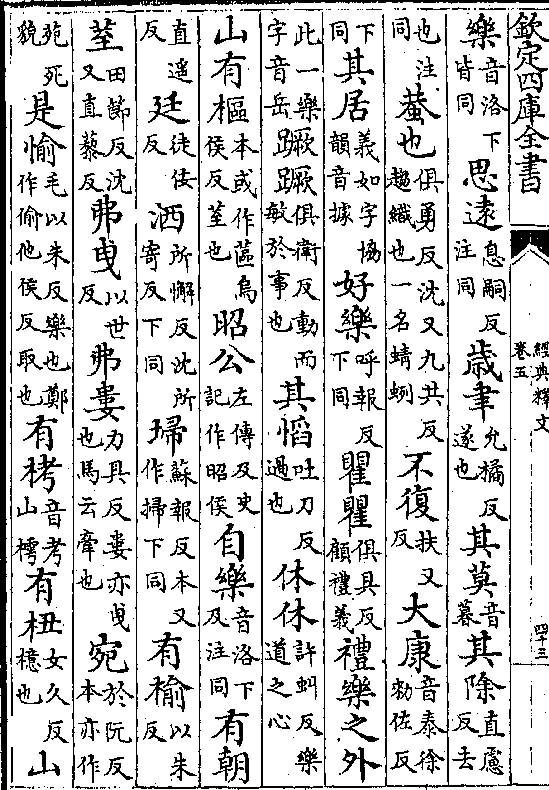 欽定四庫全書
經典釋文
卷五
四十三
樂音洛下皆同思遠息嗣反注同歲聿允橘反遂也其莫音暮其除直慮反去
也注同蛬也俱勇反沈又九共反趨織也一名蜻蛚不復扶又反大康音泰徐勑佐反
下同其居義如字協韻音據好樂呼報反下同瞿瞿俱具反顧禮義禮樂之外
此一樂字音岳蹶蹶俱衛反動而敏於事也其慆吐刀反過也休休許虯反樂道之心
山有樞本或作蓲烏侯反荎也昭公左傳及史記作昭侯自樂音洛下及注同有朝
直遥反廷徒佞反洒所懈反沈所寄反下同埽蘇報反本又作掃下同有榆以朱反
荎田節反沈又直藜反弗曳以世反弗婁力具反婁亦曳也馬云牽也宛於阮反本亦作
苑死貌是愉毛以朱反樂也鄭作偷他侯反取也有栲音考山樗有杻女久反檍也山